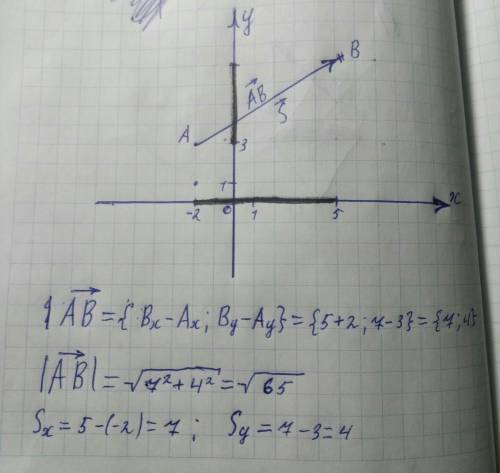 y
B
AB
S
A
3
1
-2 0 1 5 x
1 AB = { Bx - Ax; By - Ay} = {5+2; 7-3} = {7; 4}
|AB| = √7²+4² = √65
Sx = 5-(-2) = 7; Sy = 7-3=4